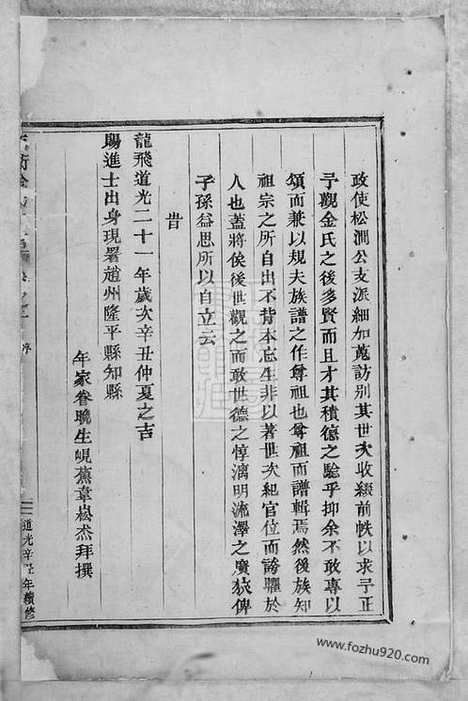 政使松澗公支派細加蒐訪別其世次收綴前帙以求予正
予觀金氏之後多賢而且才其積德之驗乎抑余不敢專以
頌而兼以規夫族譜之作尊祖也尊祖而譜輯焉然後族知
祖宗之所自出不背本忘生非以著世次紀官位而誇耀於
人也蓋將俟後世觀之而敢世德之惇漓明流澤之廣狹俾
子孫益思所以自立云
昔
龍飛道光二十一年歲次辛丑仲夏之吉
賜進士出身現署趙州隆平縣知縣
年家眷晚生峴蕉韋崧杰拜撰
序
道光辛丑年續修
www.fozhu920.com